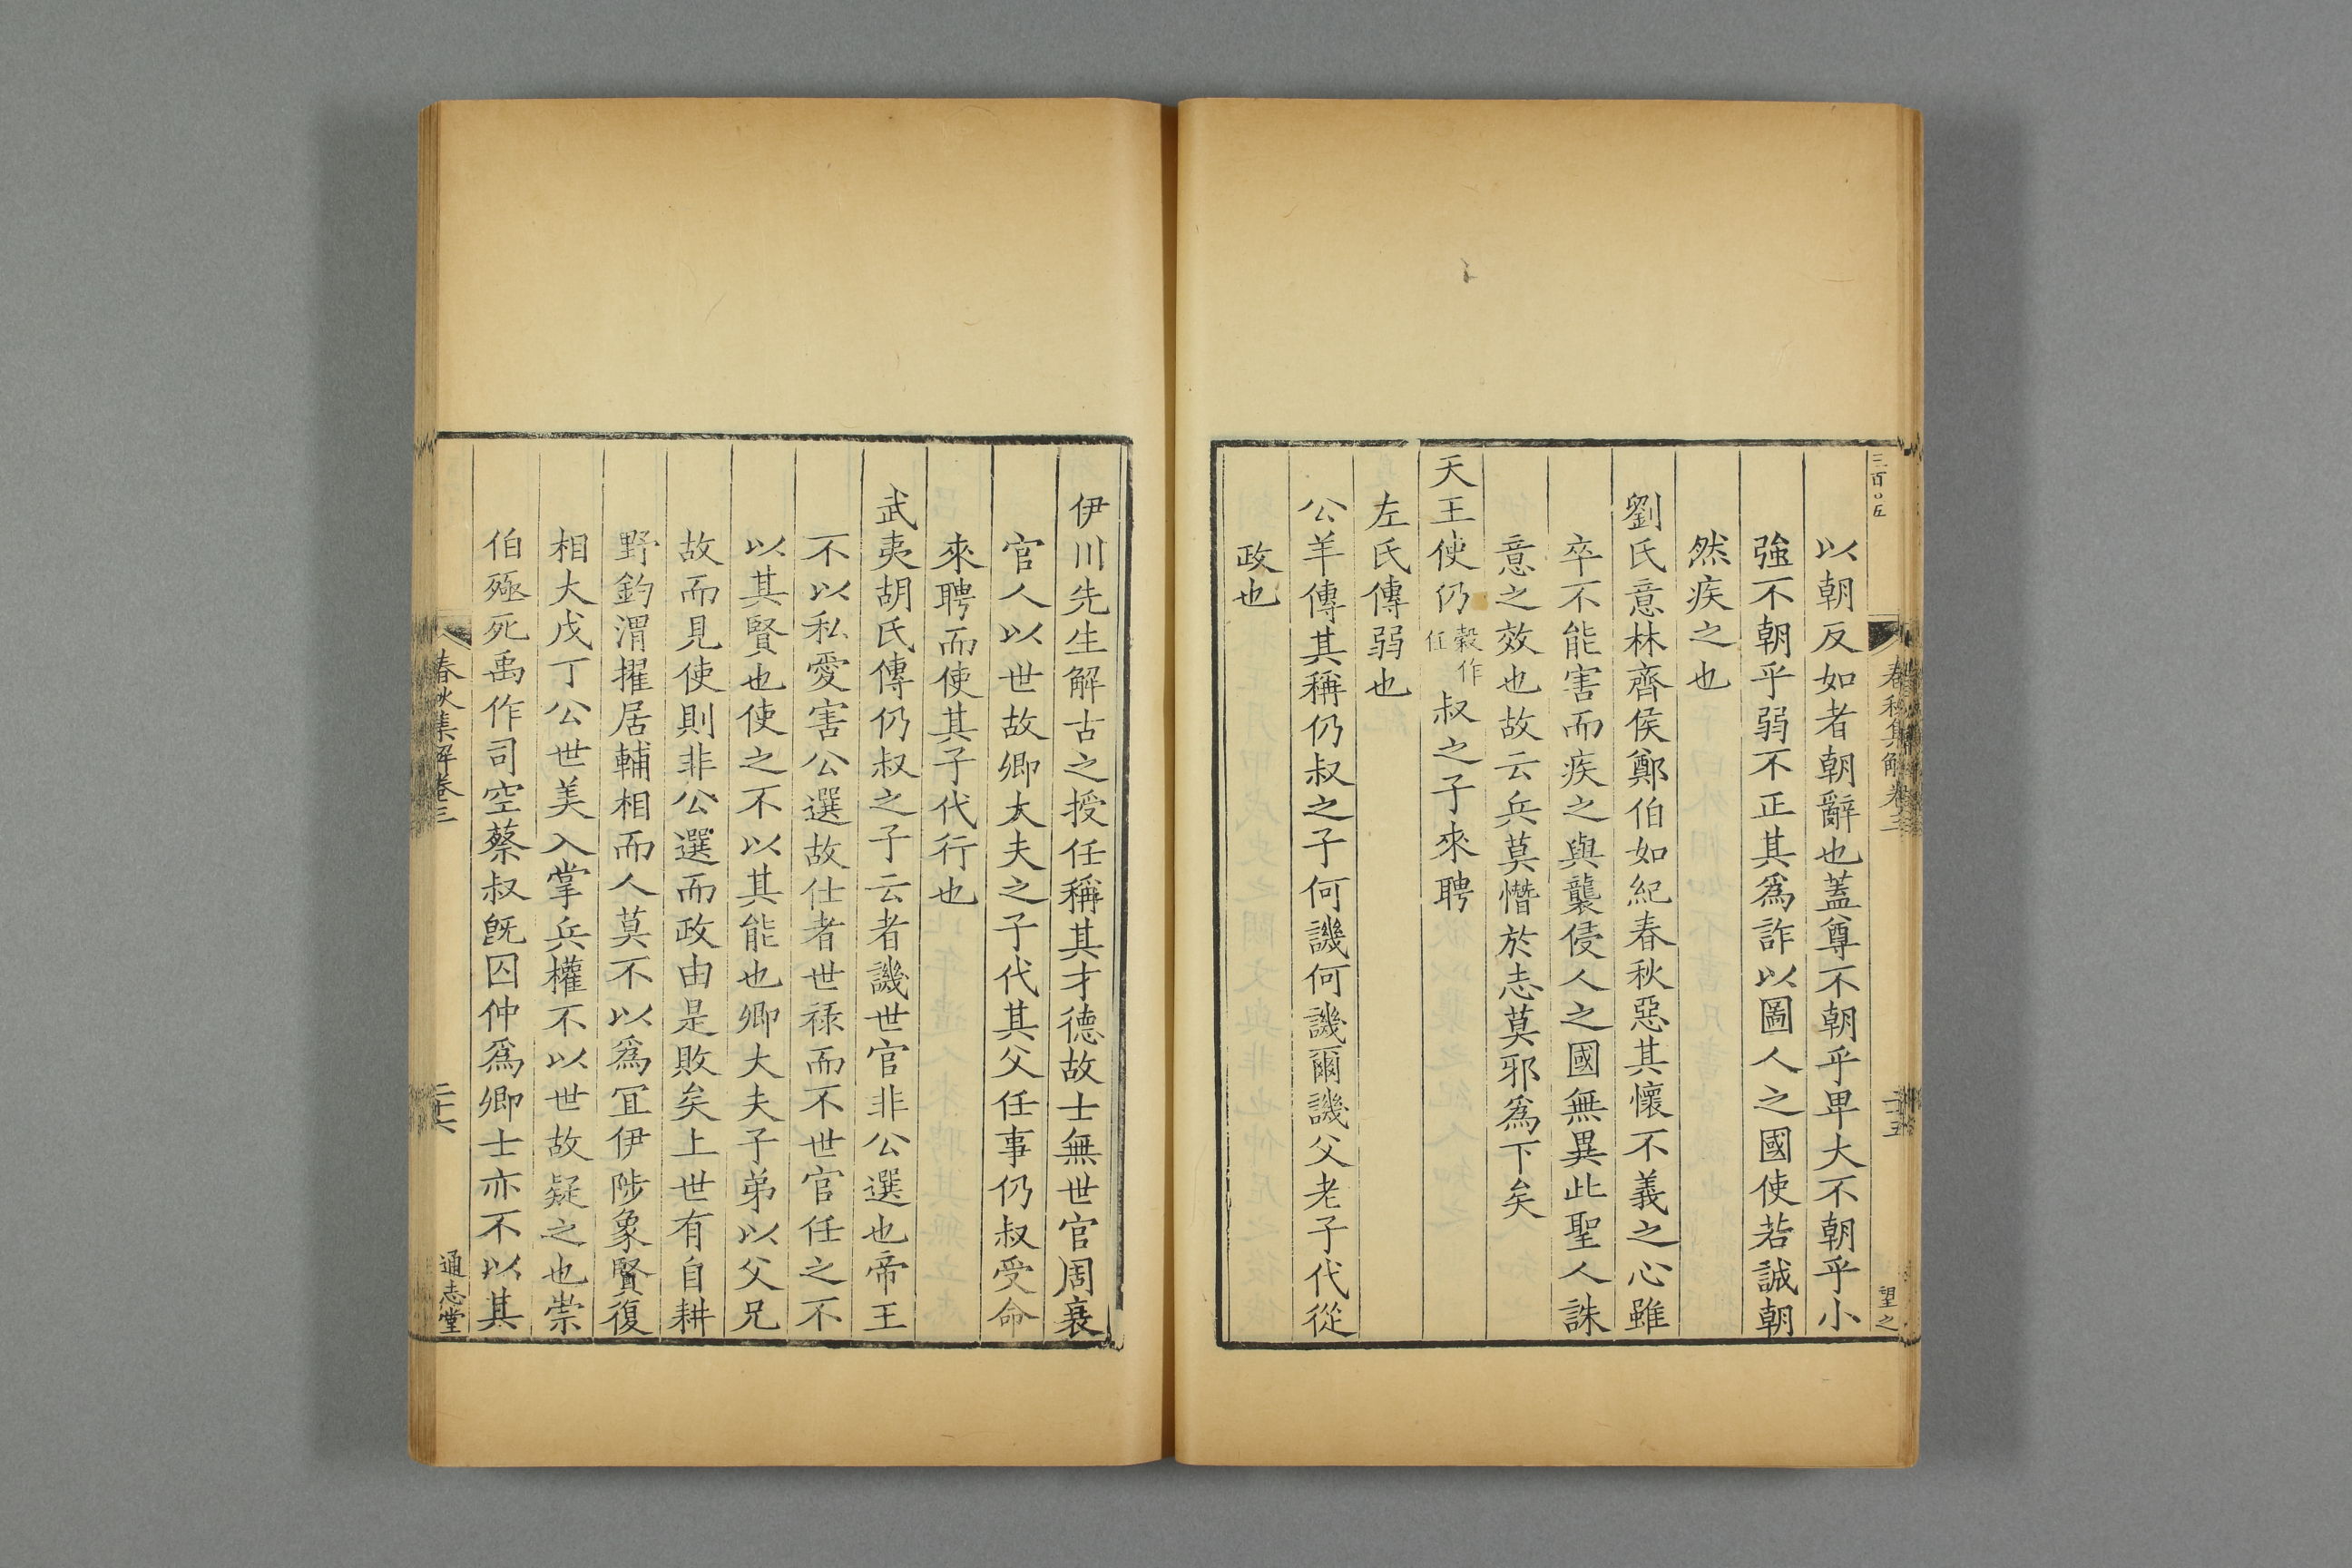 三百〇五
春秋集解卷三
二十五
望之
以朝反如者朝辭也蓋尊不朝乎卑大不朝乎小
強不朝乎弱不正其爲詐以圖人之國使若誠朝
然疾之也
劉氏意林齊侯鄭伯如紀春秋惡其懷不義之心雖
卒不能害而疾之與襲侵人之國無異此聖人誅
意之效也故云兵莫憯於志莫邪爲下矣
天王使仍穀作任叔之子來聘
左氏傳弱也
公羊傳其稱仍叔之子何譏何譏爾譏父老子代從
政也
伊川先生解古之授任稱其才德故士無世官周衰
官人以世故卿大夫之子代其父任事仍叔受命
來聘而使其子代行也
武夷胡氏傳仍叔之子云者譏世官非公選也帝王
不以私愛害公選故仕者世祿而不世官任之不
以其賢也使之不以其能也卿大夫子弟以父兄
故而見使則非公選而政由是敗矣上世有自耕
野釣渭擢居輔相而人莫不以爲宜伊陟象賢復
相大戊丁公世美入掌兵權不以世故疑之也崇
伯殛死禹作司空蔡叔旣囚仲爲卿士亦不以其
春秋集解卷三
二十六
通志堂